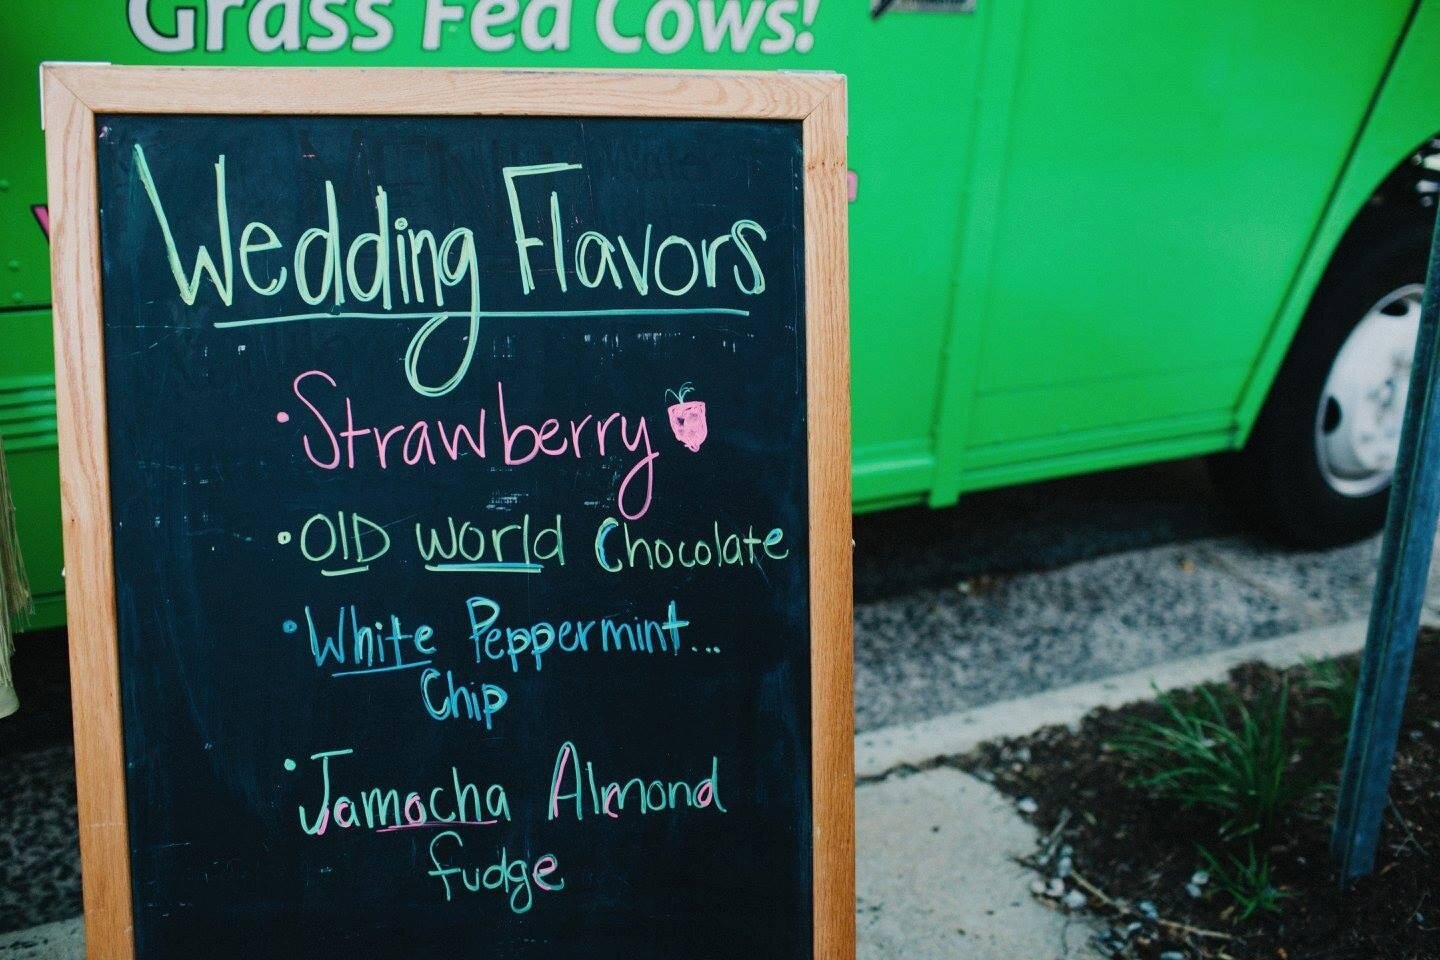 Grass Fed Cows!
Wedding Flavors
• Strawberry
• OlD World Chocolate
• White Peppermint...
Chip
• Jamocha Almond
fudge